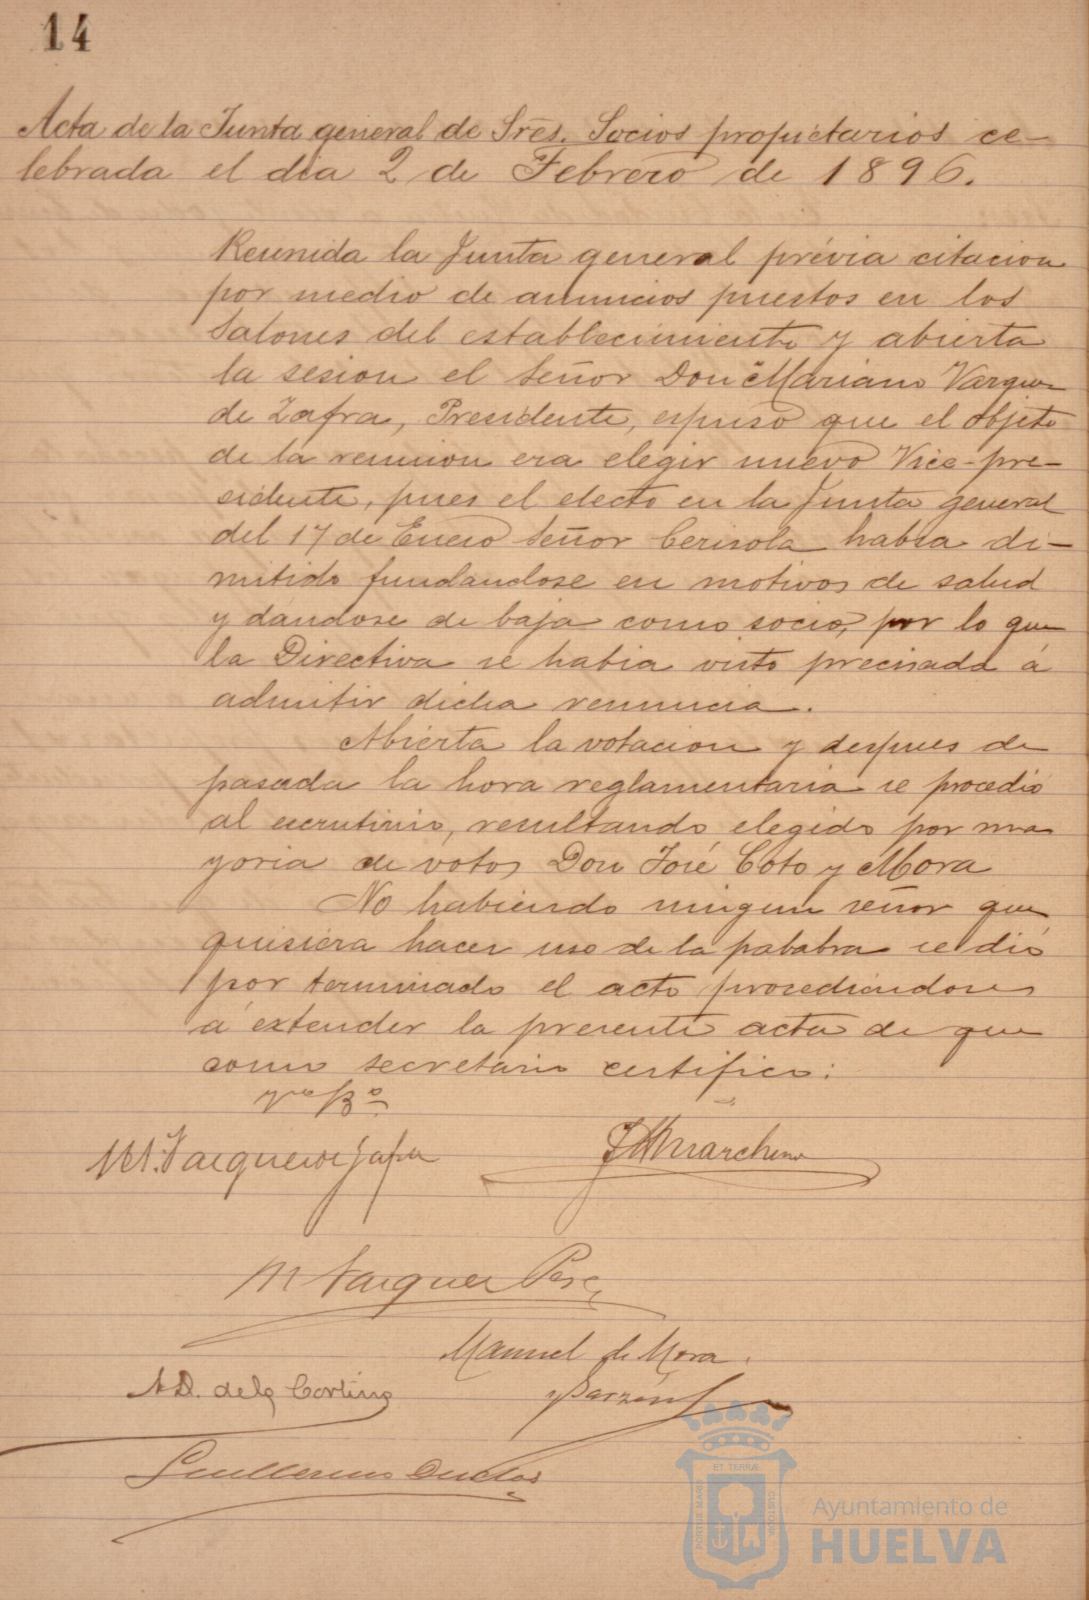 14
Acta de la Junta general de Sres. Socios propietarios ce-
lebrada el dia 2 de Febrero de 1896.
Reunida la Junta general prévia citacion
por medio de anuncios puestos en los
Salones del establecimiento y abierta
la sesion el Señor Don Mariano Vazquez
de Zafra, Presidente, espuso que el objeto
de la reunion era elegir nuevo Vice-pre-
sidente, pues el electo en la Junta general
del 17 de Enero Señor Cerisola habia di-
mitido fundandose en motivos de salud
y dandose de baja como socio, por lo que
la Directiva se habia visto precisada á
admitir dicha renuncia.
Abierta la votacion y despues de
pasada la hora reglamentaria se procedió
al escrutinio, resultando elegido por ma
yoria de votos Don José Coto y Mora
No habiendo ningun señor que
quisiera hacer uso de la pababra se dió
por terminado el acto procediendose
á extender la presente acta de que
como secretario certifico:
Vº Bº
M. Vazquez de Zafra
Marchena
M Vazquez Perez
Manuel de Mora
y Garzón
A D. de la Cortina
Guillermo Duclos
PORTUS MARIS
ET TERRÆ
CUSTODIA
Ayuntamiento de
HUELVA